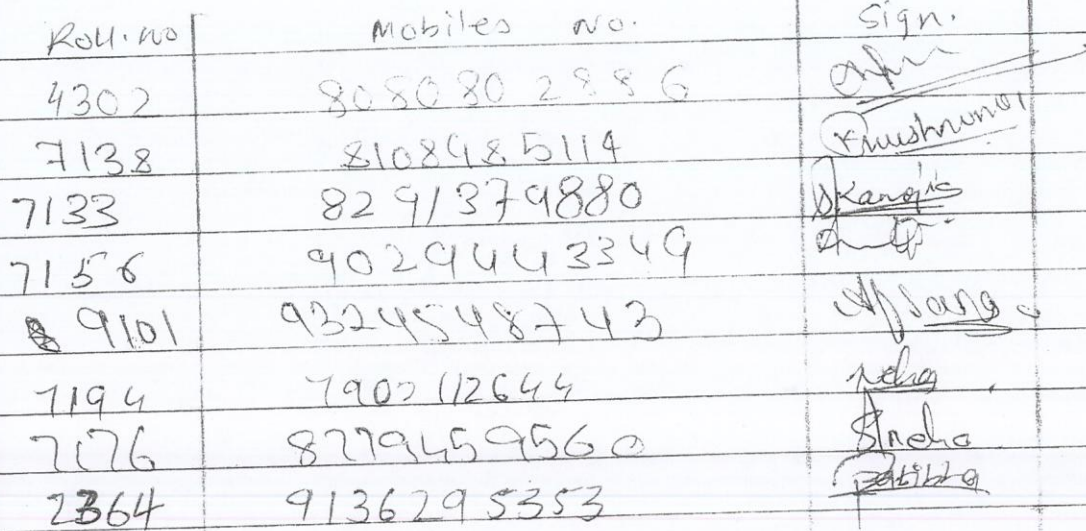 Roll.no Mobiles no. Sign.
4302 8080802886
7138 8108485114 Khushnuma
7133 8291379880 Kangis
7156 9029443349
9101 9324548743 Afsana
7194 7902112644 Neha
7176 8779459560 Sneha
2364 9136295353